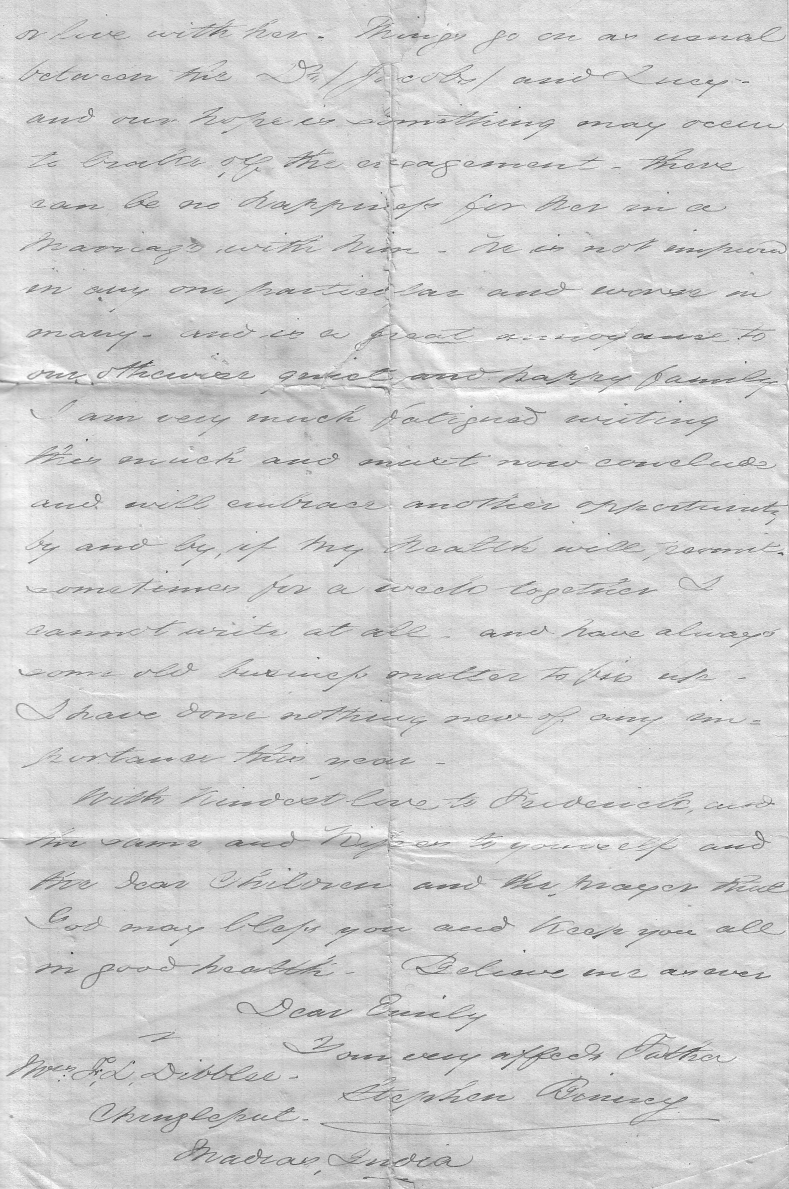 or live with her - Things go on as usual
between the Dr (Jacobs) and Lucy -
and our hope is something may occur
to brake off the engagement - there
can be no happiness for her in a
marriage with him - he is not improved
in any one particular and worse in
many - and is a great annoyance to
our otherwise quiet and happy family
I am very much fatigued writing
this much and must now conclude
and will embrace another opportunity
by and by, if my health will permit -
sometimes for a week together I
cannot write at all - and have always
some old business matter to fix up -
I have done nothing new of any im=
portance this year -
With kindest love to Frederick, and
the same and Kisses to yourself and
the dear Children and the prayer that
God may bless you and Keep you all
in good health - Believe me as ever
Dear Emily
Your very affect Father
Mrs. F. L. Dibblee -
Stephen Binney
Chingleput -
Madras, India